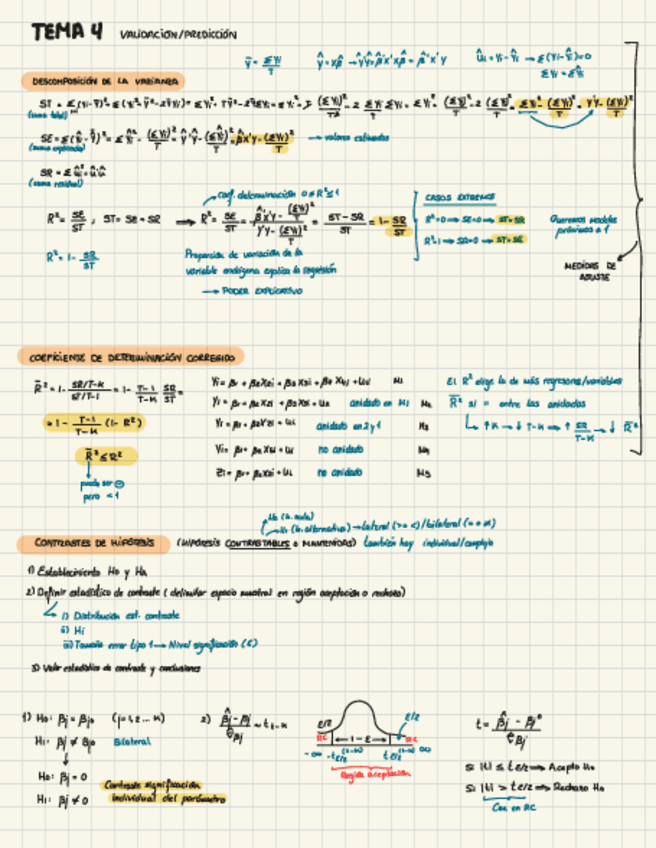 TEMA 4 VALIDACIÓN/PREDICCIÓN
ȳ = ΣYi/T ŷ = xβ̂ → ŷ'ŷ = β̂'x'xβ̂ = β̂'x'y ûi = Yi - Ŷi → Σ(Yi - Ŷi) = 0
ΣYi = ΣŶi
DESCOMPOSICIÓN DE LA VARIANZA
(suma total)
(suma explicada) → valores estimados
SR = Σûi² = û'û
(suma residual)
Coef. determinación 0 ≤ R² ≤ 1
CASOS EXTREMOS
R² = SE/ST ; ST = SE + SR → R² = SE/ST = (β̂'x'y - (ΣYi)²/T)/(y'y - (ΣYi)²/T) = (ST - SR)/ST = 1 - SR/ST
R² = 0 → SE = 0 → ST = SR
R² = 1 → SR = 0 → ST = SE
Queremos modelos próximos a 1
R² = 1 - SR/ST
Proporción de variación de la
variable endógena explica la regresión
→ PODER EXPLICATIVO
MEDIDAS DE
AJUSTE
COEFICIENTE DE DETERMINACIÓN CORREGIDO
R̄² = 1 - (SR/T-K)/(ST/T-1) = 1 - (T-1)/(T-K) SR/ST =
= 1 - (T-1)/(T-K) (1 - R²)
R̄² ≤ R²
puede ser ⊖
pero < 1
Yi = β1 + β2X2i + β3X3i + β4X4i + ui M1
Yi = β1 + β2X2i + β3X3i + ui anidado en M1 M2
Yi = β1 + β2X2i + ui anidado en 2 y 1 M3
no anidado M4
Zi = β1 + β2X2i + ui no anidado M5
El R² elige la de más regresores/variables
R̄² si = entre las anidadas
↳ ↑K → ↓ T-K → ↑ SR/T-K → ↓ R̄²
Ho (h. nula)
H1 (h. alternativa) → lateral (> o <) / bilateral (= o ≠)
CONTRASTES DE HIPÓTESIS (HIPÓTESIS CONTRASTABLES o MANTENIDAS) también hay individual/conjunta
1) Establecimiento Ho y Ha
2) Definir estadístico de contraste (delimitar espacio muestral en región aceptación o rechazo)
i) Distribución est. contraste
ii) H1
iii) Tamaño error tipo 1 → Nivel significación (ε)
3) Valor estadístico de contraste y conclusiones
1) Ho: βj = βjo (j = 1, 2 ... K)
H1: βj ≠ βjo Bilateral
↓
Ho: βj = 0
H1: βj ≠ 0
Contraste significación
individual del parámetro
2) (β̂j - βj)/σ̂β̂j ~ t T-K
ε/2 ε/2
RC 1 - ε RC
Región aceptación
t = (β̂j - βj⁰)/σ̂β̂j
Si |t| ≤ t ε/2 → Acepto Ho
Si |t| > t ε/2 → Rechazo Ho
Cae en RC